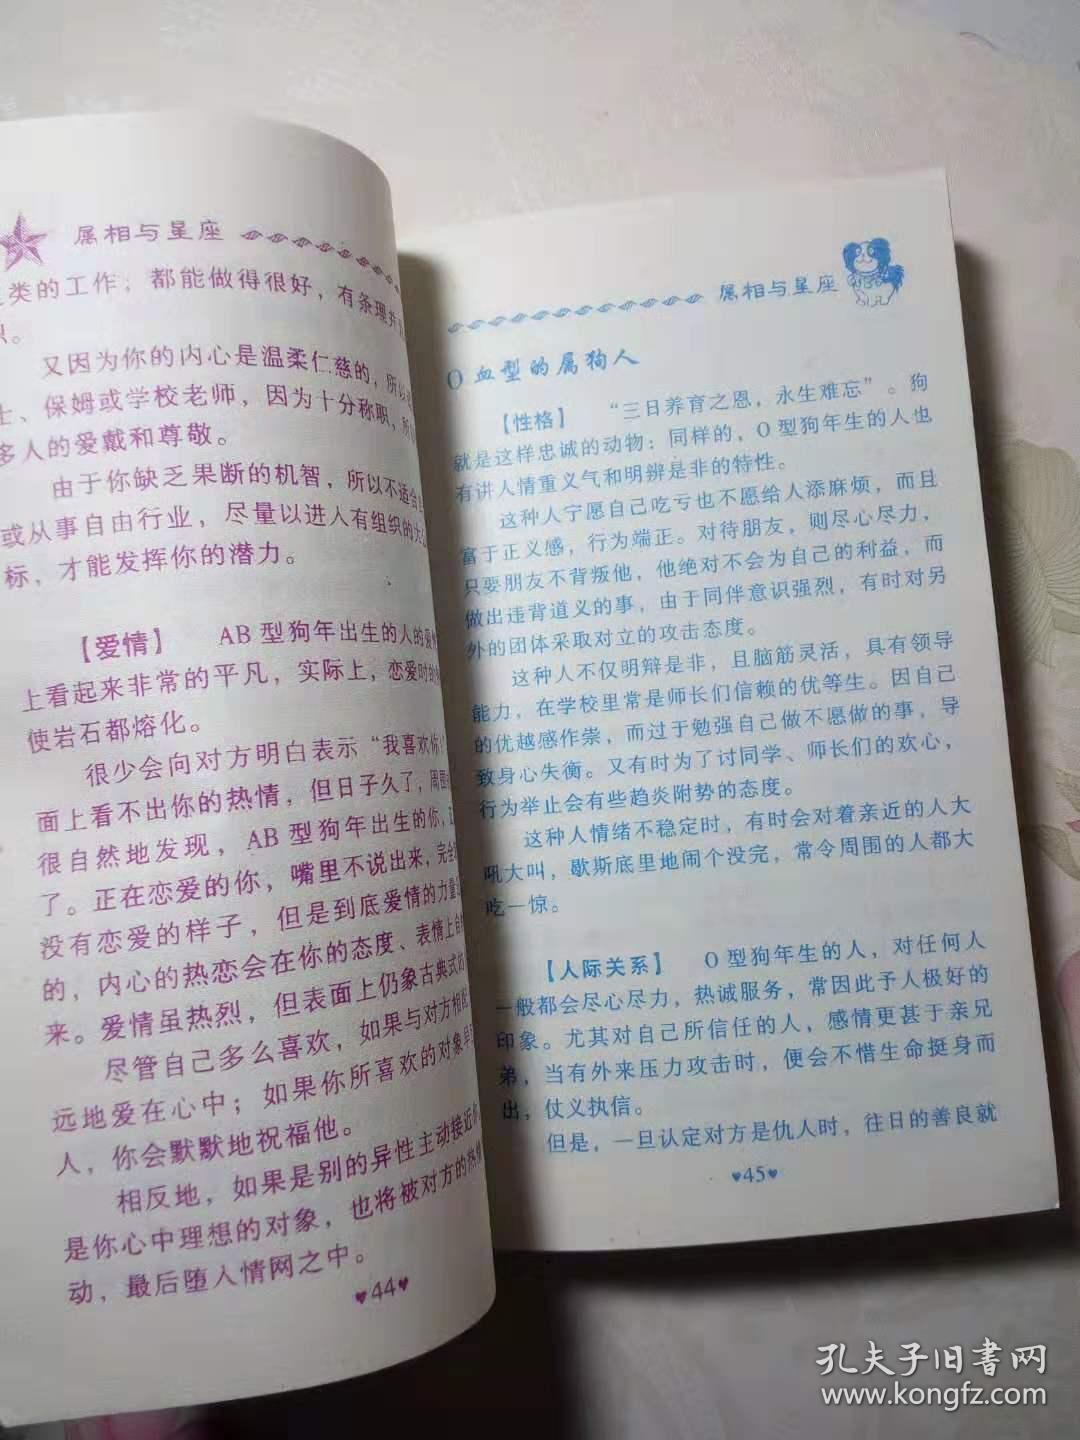 属相与星座
类的工作；都能做得很好，有条理并
又因为你的内心是温柔仁慈的，所以
士、保姆或学校老师，因为十分称职，所
多人的爱戴和尊敬。
由于你缺乏果断的机智，所以不适合
或从事自由行业，尽量以进人有组织的大
标，才能发挥你的潜力。
【爱情】 AB型狗年出生的人的爱情
上看起来非常的平凡，实际上，恋爱时的
使岩石都熔化。
很少会向对方明白表示“我喜欢你
面上看不出你的热情，但日子久了，周围
很自然地发现，AB型狗年出生的你，
了。正在恋爱的你，嘴里不说出来，完全
没有恋爱的样子，但是到底爱情的力量
的，内心的热恋会在你的态度、表情上自
来。爱情虽热烈，但表面上仍象古典式
尽管自己多么喜欢，如果与对方相
远地爱在心中；如果你所喜欢的对象早
人，你会默默地祝福他。
相反地，如果是别的异性主动接近
是你心中理想的对象，也将被对方的热
动，最后堕人情网之中。
♥44♥
属相与星座
O血型的属狗人
【性格】 “三日养育之恩，永生难忘”。狗
就是这样忠诚的动物；同样的，O型狗年生的人也
有讲人情重义气和明辨是非的特性。
这种人宁愿自己吃亏也不愿给人添麻烦，而且
富于正义感，行为端正。对待朋友，则尽心尽力，
只要朋友不背叛他，他绝对不会为自己的利益，而
做出违背道义的事，由于同伴意识强烈，有时对另
外的团体采取对立的攻击态度。
这种人不仅明辩是非，且脑筋灵活，具有领导
能力，在学校里常是师长们信赖的优等生。因自己
的优越感作祟，而过于勉强自己做不愿做的事，导
致身心失衡。又有时为了讨同学、师长们的欢心，
行为举止会有些趋炎附势的态度。
这种人情绪不稳定时，有时会对着亲近的人大
吼大叫，歇斯底里地闹个没完，常令周围的人都大
吃一惊。
【人际关系】 O型狗年生的人，对任何人
一般都会尽心尽力，热诚服务，常因此予人极好的
印象。尤其对自己所信任的人，感情更甚于亲兄
弟，当有外来压力攻击时，便会不惜生命挺身而
出，仗义执信。
但是，一旦认定对方是仇人时，往日的善良就
♥45♥
孔夫子旧書网
www.kongfz.com